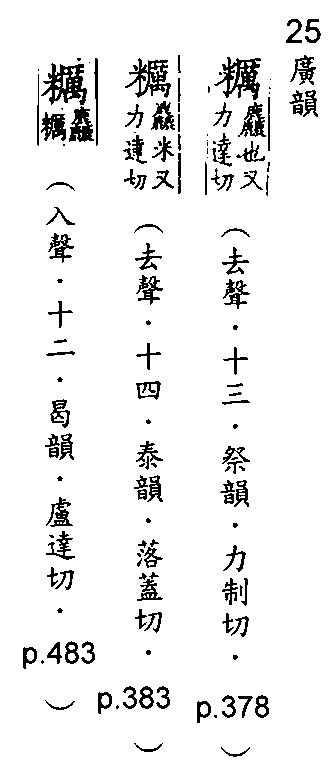 25
廣韻
糲麤也又力達切(去聲．十三．祭韻．力制切．p.378)
糲麤米又力達切(去聲．十四．泰韻．落蓋切．p.383)
糲麤糲(入聲．十二．曷韻．盧達切．p.483)